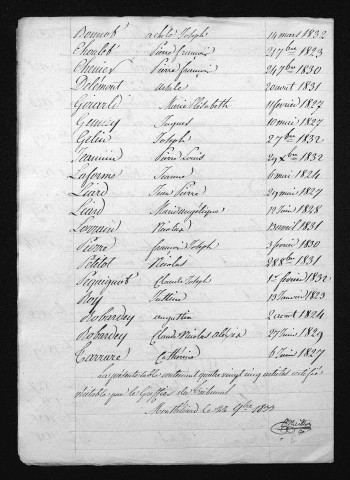 Bonnot achile Joseph 14 mars 1832
Choulet Pierre francois 21 7bre 1823
Chenier Pierre francois 24 7bre 1830
Delémont adele 20 avril 1831
Girard Marie Elisabeth 11 fevrier 1827
Jaques 10 mai 1827
Gelin Joseph 2 7bre 1832
Pierre Louis 29 Xbre 1832
Laforme Jeanne 6 mai 1824
Liard Jean Pierre 29 mai 1827
Liard Marie angelique 12 Juin 1828
Lorrain Nicolas 13 avril 1831
Pierre francois Joseph 3 fevrier 1830
Petitot Nicolas 28 8bre 1831
Claude Joseph 1er fevrier 1832
Roy Justine 13 Janvier 1823
Robardey augustin 2 aout 1824
Robardey Claude Nicolas 27 Juin 1829
Carrare Catherine 6 Juin 1827
La présente table contenant quatre vingt cinq articles certifiée
véritable par le Greffier du tribunal
Montbéliard le 9bre 1833